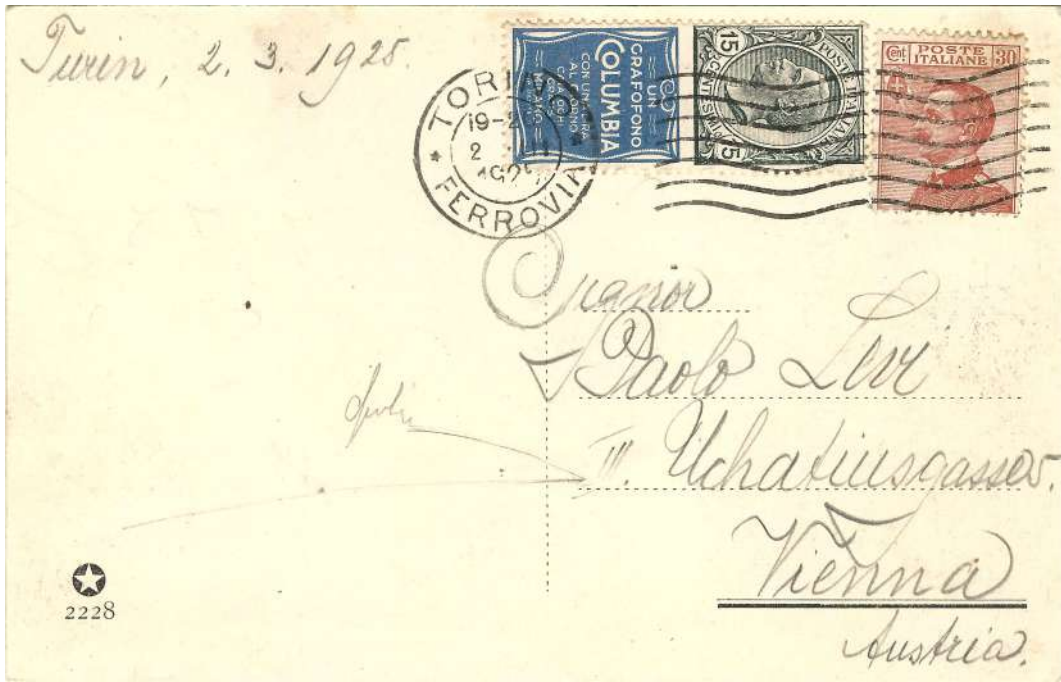 Turin, 2. 3. 1925.
UN
GRAFOFONO
COLUMBIA
CON UN'OPERA
AL GIORNO
MILANO
15 CENTESIMI 15
POSTE ITALIANE
Cent POSTE ITALIANE 30
TORINO
19-2
2 III
192
* FERROVIA *
Signor
Paolo Levi
III. Uchatiusgasse 5.
Vienna
Austria.
2228